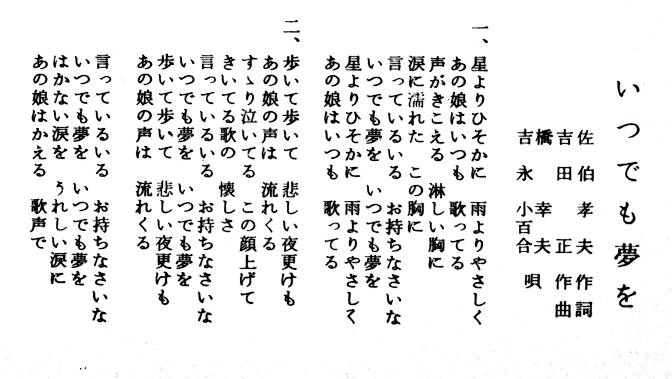 いつでも夢を
佐伯孝夫 作詞
吉田正 作曲
橋幸夫
吉永小百合 唄
一、星よりひそかに 雨よりやさしく
あの娘はいつも 歌ってる
声がきこえる 淋しい胸に
涙に濡れた この胸に
言っているいる お持ちなさいな
いつでも夢を いつでも夢を
星よりひそかに 雨よりやさしく
あの娘はいつも 歌ってる
二、歩いて歩いて 悲しい夜更けも
あの娘の声は 流れくる
すゝり泣いてる この顔上げて
きいてる歌の 懐しさ
言っているいる お持ちなさいな
いつでも夢を いつでも夢を
歩いて歩いて 悲しい夜更けも
あの娘の声は 流れくる
言っているいる お持ちなさいな
いつでも夢を いつでも夢を
はかない涙を うれしい涙に
あの娘はかえる 歌声で